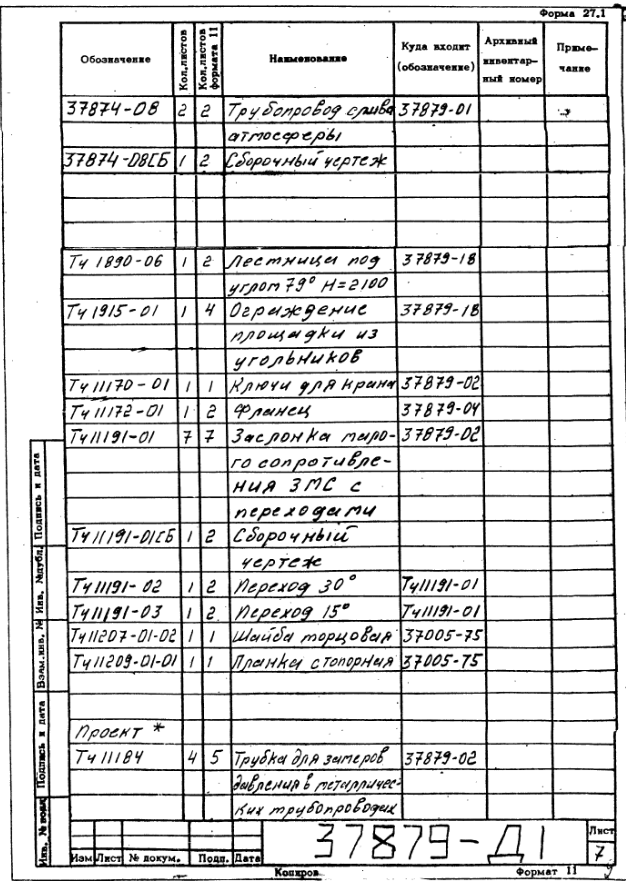 Форма 27.1
Обозначение Кол.листов Кол.листов формата 11 Наименование Куда входит (обозначение) Архивный инвентарный номер Примечание
37874-08 2 2 Трубопровод слива 37879-01
атмосферы
37874-08СБ 1 2 Сборочный чертеж
Тч 1890-06 1 2 Лестницы под 37879-18
углом 79° H=2100
Тч 1915-01 1 4 Ограждение 37879-18
площадки из
угольников
Тч 11170-01 1 1 Ключи для крана 37879-02
Тч 11172-01 1 2 Фланец 37879-04
Тч 11191-01 7 7 Заслонка мало- 37879-02
го сопротивле-
ния ЗМС с
переходами
Тч 11191-01СБ 1 2 Сборочный
чертеж
Тч 11191-02 1 2 Переход 30° Тч11191-01
Тч 11191-03 1 2 Переход 15° Тч11191-01
Тч 11207-01-02 1 1 Шайба торцовая 37005-75
Тч 11209-01-01 1 1 Планка стопорная 37005-75
Проект *
Тч 11184 4 5 Трубка для замеров 37879-02
давления в металличес-
ких трубопроводах
Инв. № подл. Подпись и дата Взам.инв. № Инв. №дубл. Подпись и дата
Изм Лист № докум. Подп. Дата
37879-Д1
Лист
7
Копиров. Формат 11